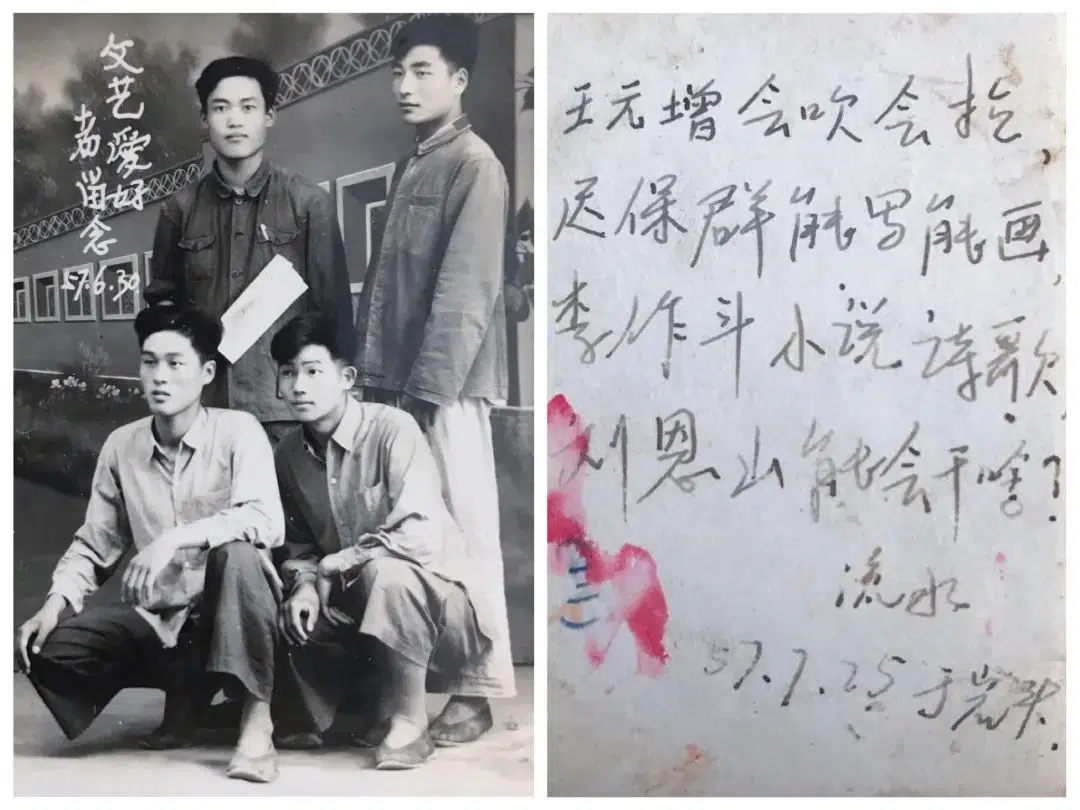 文艺爱好
者留念
57.6.30
王元增会吹会拉,
迟保群能写能画,
李作斗小说诗歌,
刘恩山能会干啥?
流水
57.7.25于岩头.